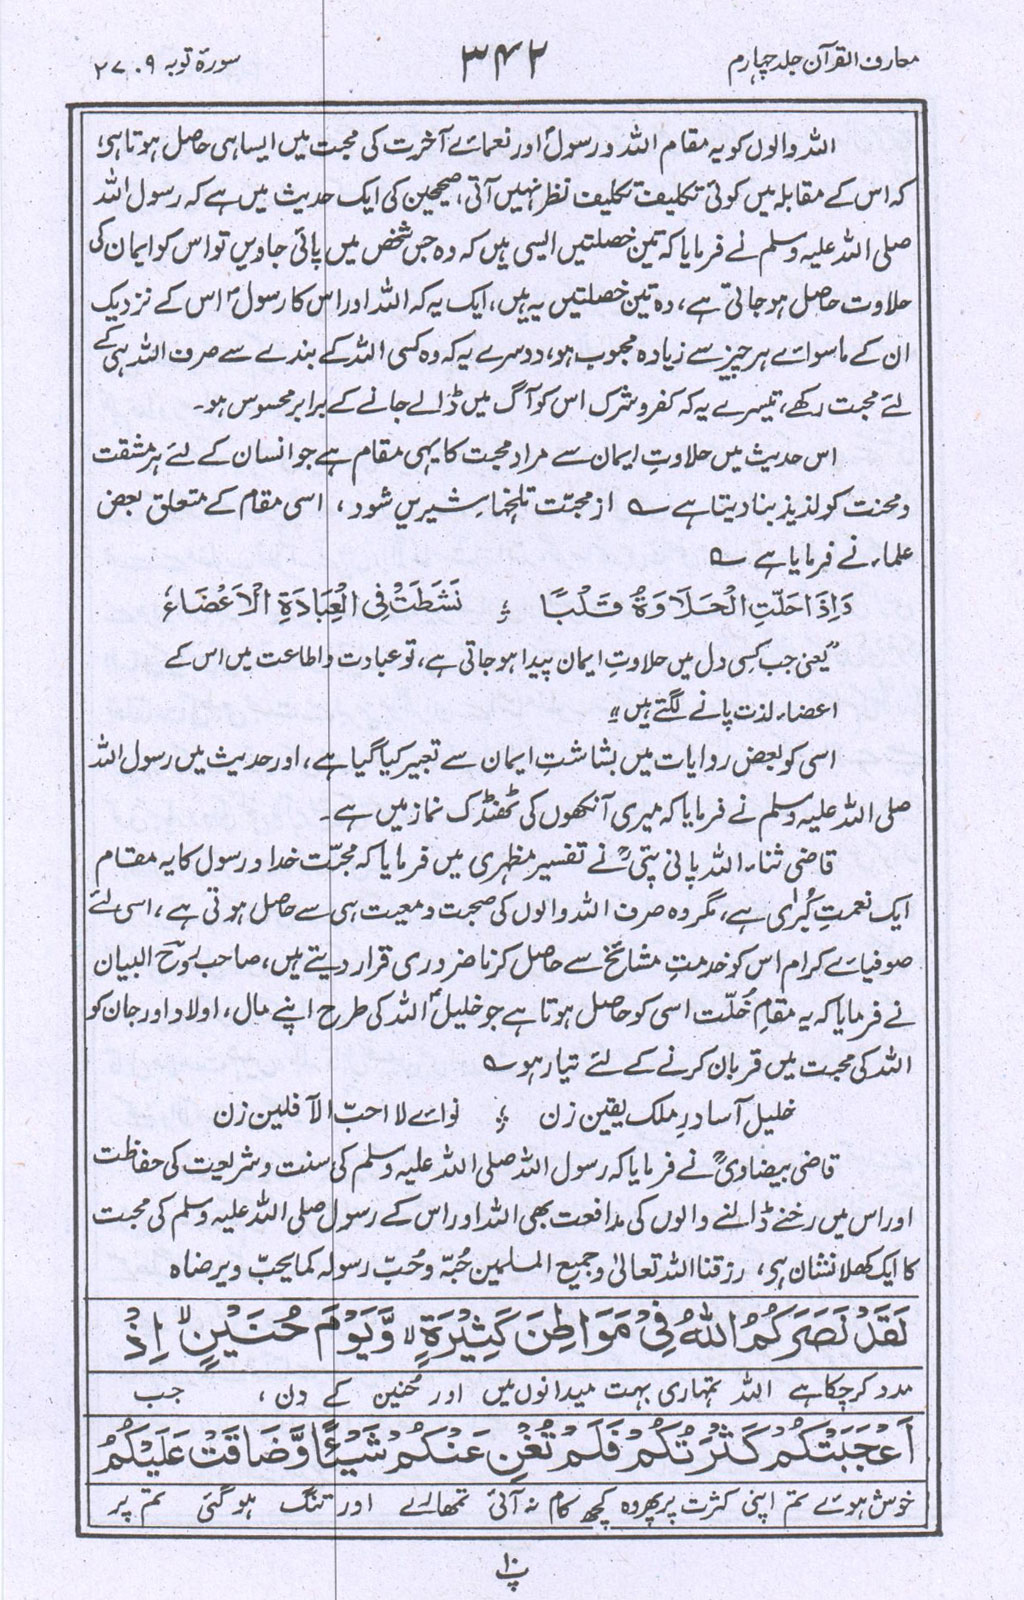 معارف القرآن جلد چہارم
۳۴۲
سورۃ توبہ ۹ : ۲۷
اللہ والوں کو یہ مقام اللہ و رسولؐ اور نعمائے آخرت کی محبت میں ایسا ہی حاصل ہوتا ہی،
کہ اس کے مقابلہ میں کوئی تکلیف تکلیف نظر نہیں آتی، صحیحین کی ایک حدیث میں ہے کہ رسول اللہ
صلی اللہ علیہ وسلم نے فرمایا کہ تین خصلتیں ایسی ہیں کہ وہ جس شخص میں پائی جاویں تو اس کو ایمان کی
حلاوت حاصل ہو جاتی ہے، وہ تین خصلتیں یہ ہیں، ایک یہ کہ اللہ اور اس کا رسولؐ اس کے نزدیک
ان کے ماسوائے ہر چیز سے زیادہ محبوب ہو، دوسرے یہ کہ وہ کسی اللہ کے بندے سے صرف اللہ ہی کے
لئے محبت رکھے، تیسرے یہ کہ کفر و شرک اس کو آگ میں ڈالے جانے کے برابر محسوس ہو۔
اس حدیث میں حلاوتِ ایمان سے مراد محبت کا یہی مقام ہے جو انسان کے لئے ہر مشقت
و محنت کو لذیذ بنا دیتا ہے ؎ از محبّت تلخہا شیریں شود، اسی مقام کے متعلق بعض
علماء نے فرمایا ہے ؎
وَاِذَا حَلَّتِ الْحَلَاوَةُ قَلْبًا ؛ نَشَطَتْ فِی الْعِبَادَةِ الْاَعْضَاءُ
”یعنی جب کسی دل میں حلاوتِ ایمان پیدا ہو جاتی ہے، تو عبادت و اطاعت میں اس کے
اعضاء لذت پانے لگتے ہیں“
اسی کو بعض روایات میں بشاشتِ ایمان سے تعبیر کیا گیا ہے، اور حدیث میں رسول اللہ
صلی اللہ علیہ وسلم نے فرمایا کہ میری آنکھوں کی ٹھنڈک نماز میں ہے۔
قاضی ثناء اللہ پانی پتیؒ نے تفسیر مظہری میں فرمایا کہ محبّت خدا و رسول کا یہ مقام
ایک نعمتِ کُبریٰ ہے، مگر وہ صرف اللہ والوں کی صحبت و معیت ہی سے حاصل ہوتی ہے، اسی لئے
صوفیائے کرام اس کو خدمتِ مشائخ سے حاصل کرنا ضروری قرار دیتے ہیں، صاحب روح البیان
نے فرمایا کہ یہ مقامِ خُلّت اسی کو حاصل ہوتا ہے جو خلیل اللہؑ کی طرح اپنے مال، اولاد اور جان کو
اللہ کی محبت میں قربان کرنے کے لئے تیار ہو ؎
خلیل آسا در ملک یقین زن ؛ نوائے لا احبّ الآفلین زن
قاضی بیضاویؒ نے فرمایا کہ رسول اللہ صلی اللہ علیہ وسلم کی سنت و شریعت کی حفاظت
اور اس میں رخنے ڈالنے والوں کی مدافعت بھی اللہ اور اس کے رسول صلی اللہ علیہ وسلم کی محبت
کا ایک کھلا نشان ہی، رزقنا اللہ تعالیٰ و جمیع المسلمین حُبّہ و حُبّ رسولہ کما یحبّ ویرضاہ
لَقَدْ نَصَرَكُمُ اللّٰهُ فِیْ مَوَاطِنَ كَثِیْرَةٍ ۙ وَّیَوْمَ حُنَیْنٍ ۙ اِذْ
مدد کر چکا ہے اللہ تمہاری بہت میدانوں میں اور حُنین کے دن، جب
اَعْجَبَتْكُمْ كَثْرَتُكُمْ فَلَمْ تُغْنِ عَنْكُمْ شَیْـًٔا وَّضَاقَتْ عَلَیْكُمُ
خوش ہوئے تم اپنی کثرت پر پھر وہ کچھ کام نہ آئی تمھارے اور تنگ ہو گئی تم پر
پ۱۰